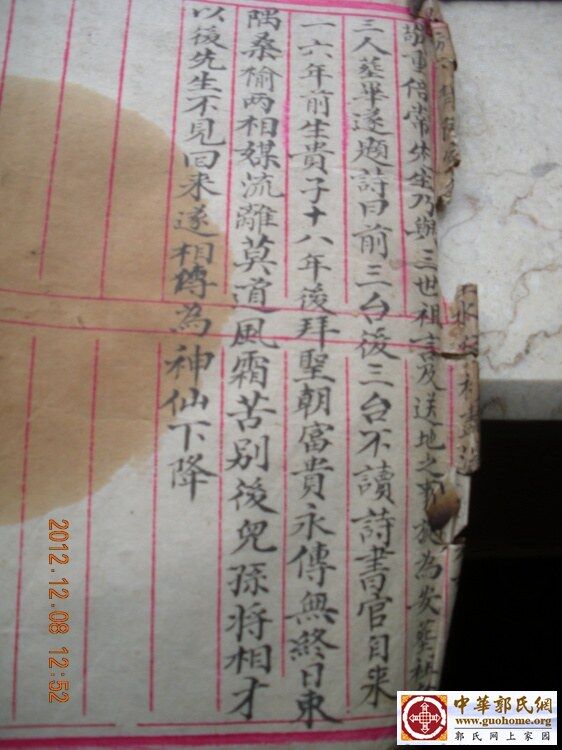 重侣常先生乃与三世祖言及送地之事於為安葬祖
三人葬畢遂題詩曰前三台後三台不讀詩書官自来
一六年前生貴子十八年後拜聖朝富貴永傳無終日東
隅桑偷兩相媒流離莫道風霜苦别後兒孫將相才
以後先生不見回来遂相傳為神仙下降
2012.12.08 12:52
中華郭氏網
www.guohome.org
郭氏网上家园